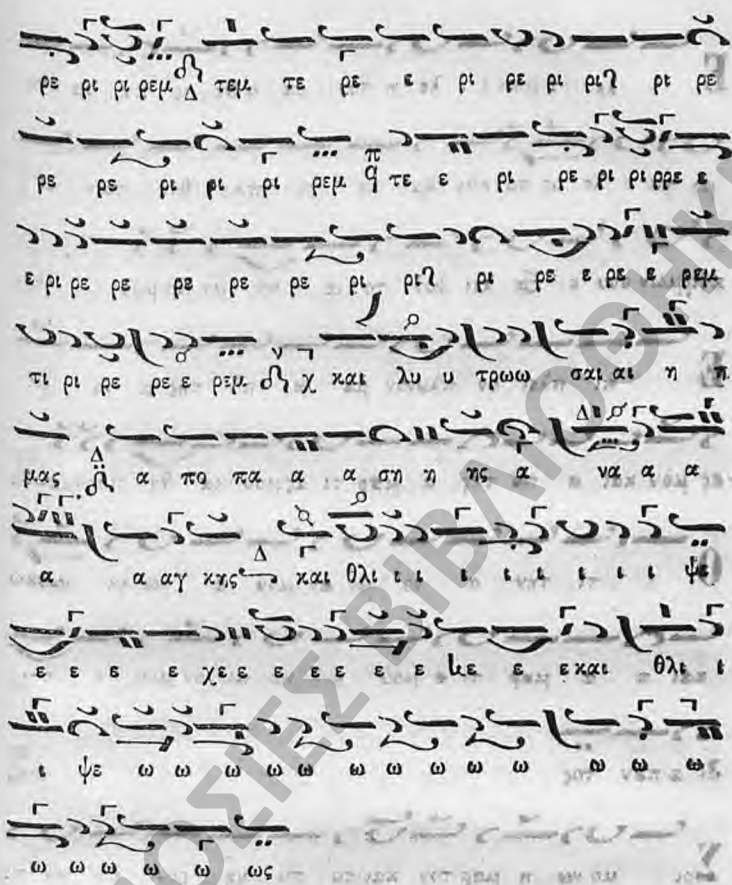 ρε ρι ρι ρεμ Δ τεμ τε ρε ε ρι ρε ρι ρι ρι ρε
ρε ρε ρι ρι ρι ρεμ π q τε ε ρι ρε ρι ρι ρρε ε
ε ρι ρε ρε ρε ρε ρε ρι ρι ρι ρε ε ρε ε ρεμ
τι ρι ρε ρε ε ρεμ ν χ και λυ υ τρωω σαι αι η π
μας Δ α πο πα α α ση η ης α να α α
α α αγ κης Δ και θλι ι ι ι ι ι ι ι ι ψε
ε ε ε ε χε ε ε ε ε ε ε ε ε ε και θλι ι
ι ψε ω ω ω ω ω ω ω ω ω ω ω ω ω
ω ω ω ω ω ως
ΟΣΙΕΣ ΒΙΒΛΙΟΘΗΚ